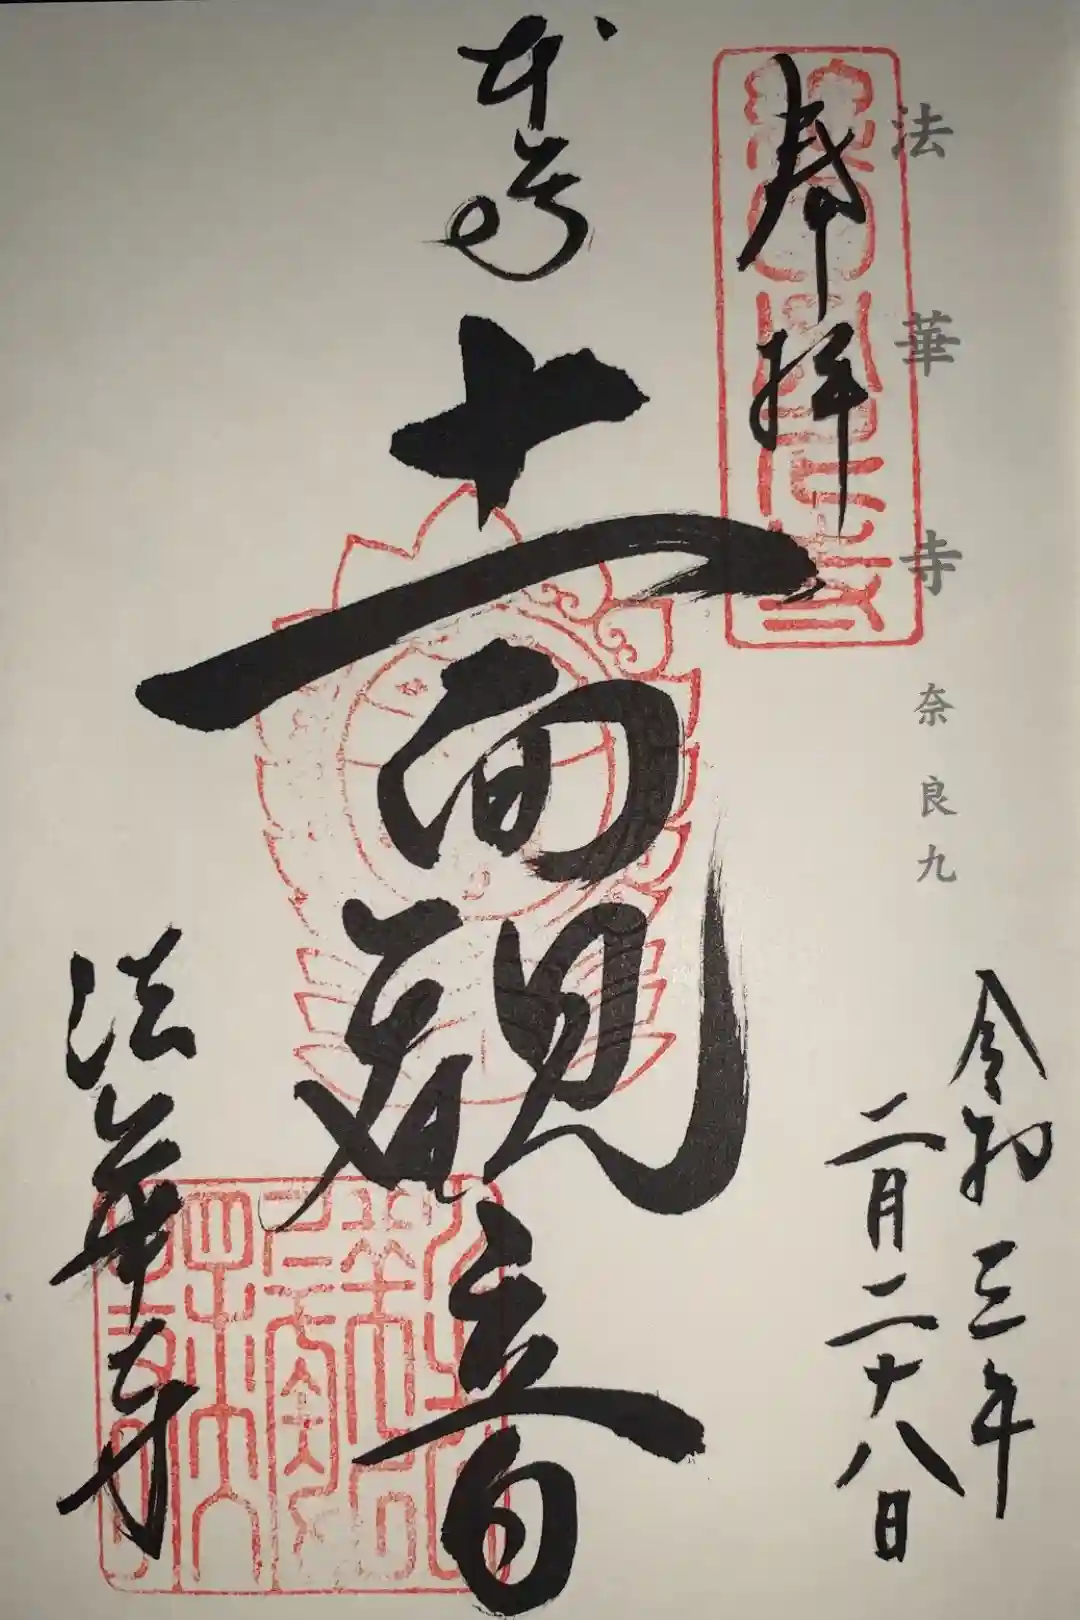 法華寺 奈良九
奉拝
令和三年
二月二十八日
本尊
十一面観音
法華寺